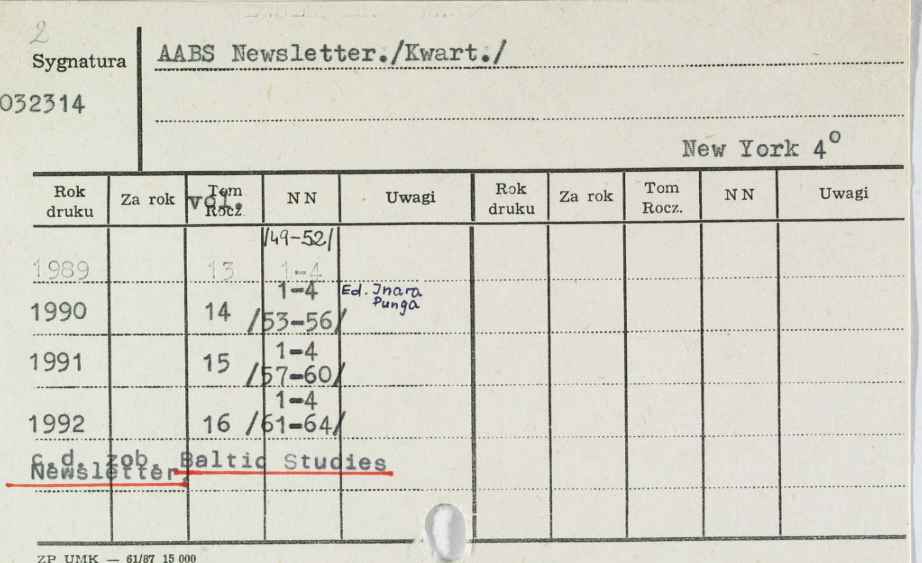 2
Sygnatura AABS Newsletter./Kwart./
032314
New York 4º
Rok druku Za rok Tom Rocz. vol. N N Uwagi Rok druku Za rok Tom Rocz. N N Uwagi
/49-52/
1989 13 1-4
1-4 Ed. Inara
1990 14 /53-56/ Punga
1-4
1991 15 /57-60/
1-4
1992 16 /61-64/
c.d. zob. Baltic Studies
Newsletter.
ZP UMK — 61/87 15 000